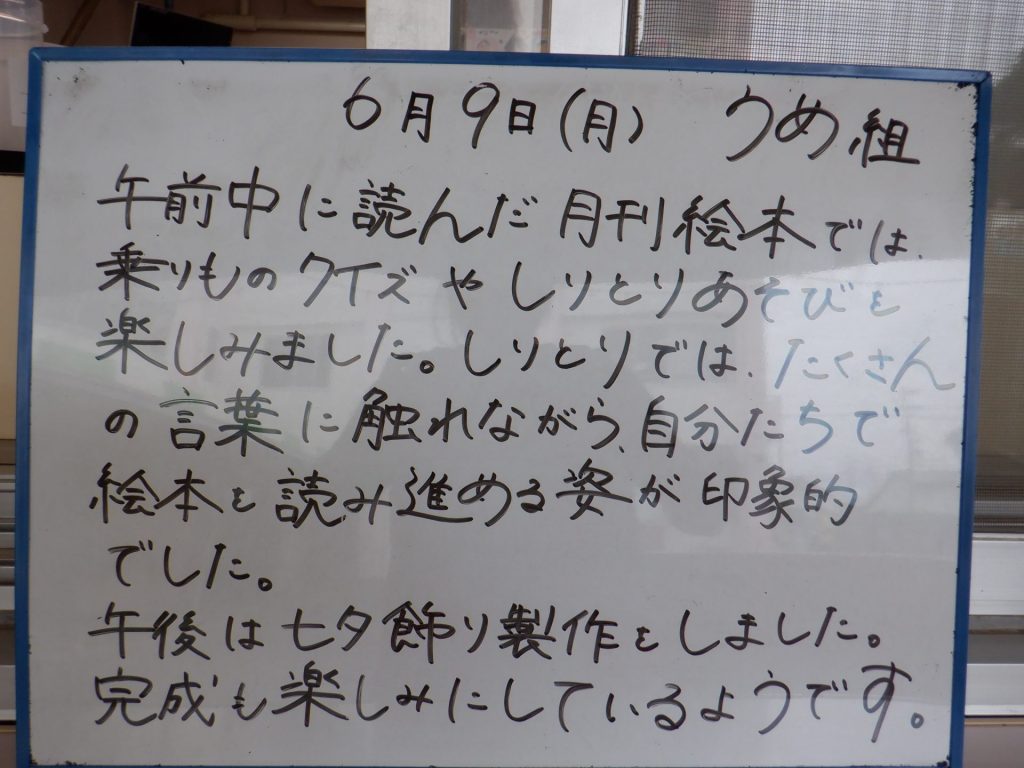 6月9日(月) うめ組
午前中に読んだ月刊絵本では、
乗りものクイズやしりとりあそびを
楽しみました。しりとりでは、たくさん
の言葉に触れながら、自分たちで
絵本を読み進める姿が印象的
でした。
午後は七夕飾り製作をしました。
完成も楽しみにしているようです。